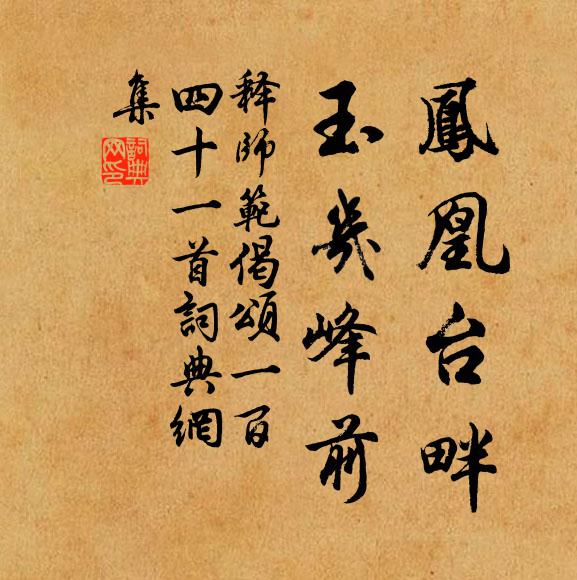 鳳凰台畔
玉几峰前
释師範偈頌一百
四十一首詞典網
集
詞典
网印